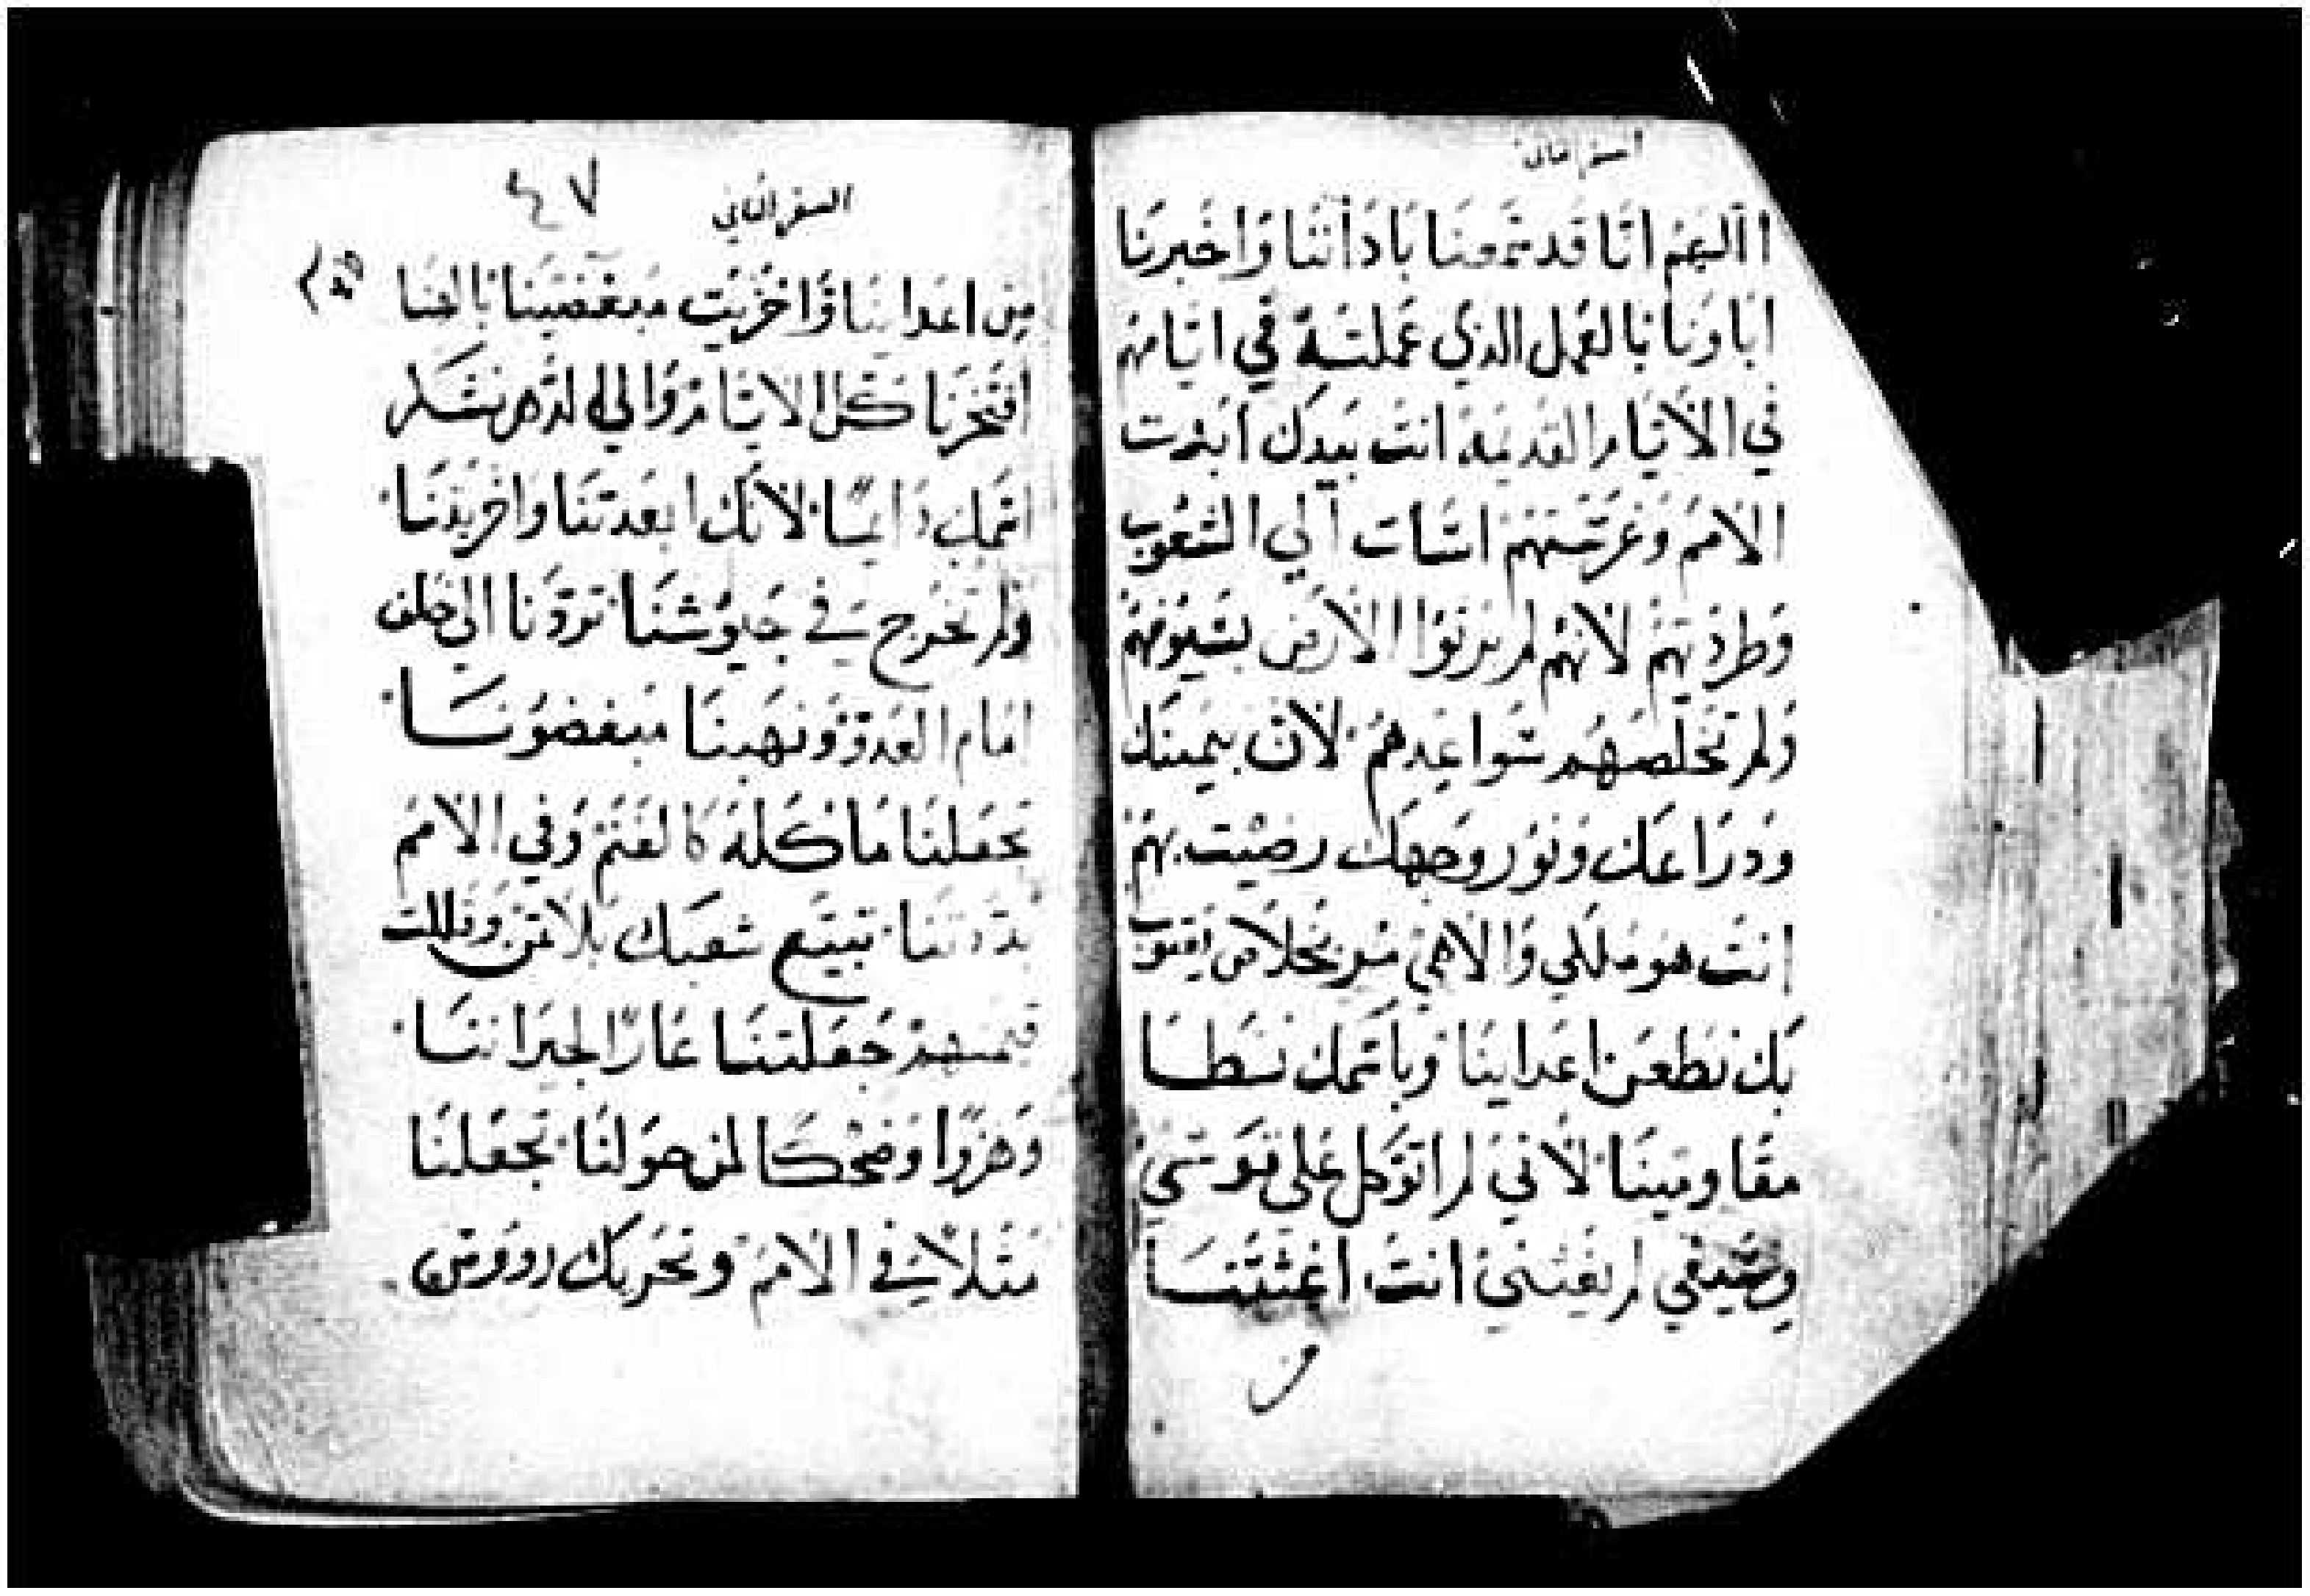 السفر الثاني
اللهم انا قد سمعنا باداننا واخبرنا
اباونا بالعمل الذي عملته في ايامهم
في الايام القديمه انت بيدك ابدت
الامم وغرستهم اسات الي الشعوب
وطردتهم لانهم لم يرتوا الارض بسيوفهم
ولم تخلصهم سواعدهم لان يمينك
ودراعك ونور وجهك رضيت بهم
انت هو ملكي والاهي بخلاص يعقوب
بك نطعن اعداينا وباسمك نسطا
مقاومينا لاني لم اتوكل علي قوسي
وسيفي لم يغيثني انت اغثتنا
من
السفر الثاني
٤٧
من اعداينا واخزيت مبغضينا بالهنا
افتخرنا كل الايام والي الدهر نشكر
اسمك دايما لانك ابعدتنا واخزيتنا
ولم تخرج في جيوشنا تردنا الي خلف
امام العدو ونهبنا مبغضونا
تجعلنا ماكله كالغنم وفي الامم
بددتنا تبيع شعبك بلا تمن وقللت
قيمتهم جعلتنا عارا لجيراننا
وهزوا وضحكا لمن حولنا تجعلنا
مثلا في الامم وتحريك رووس